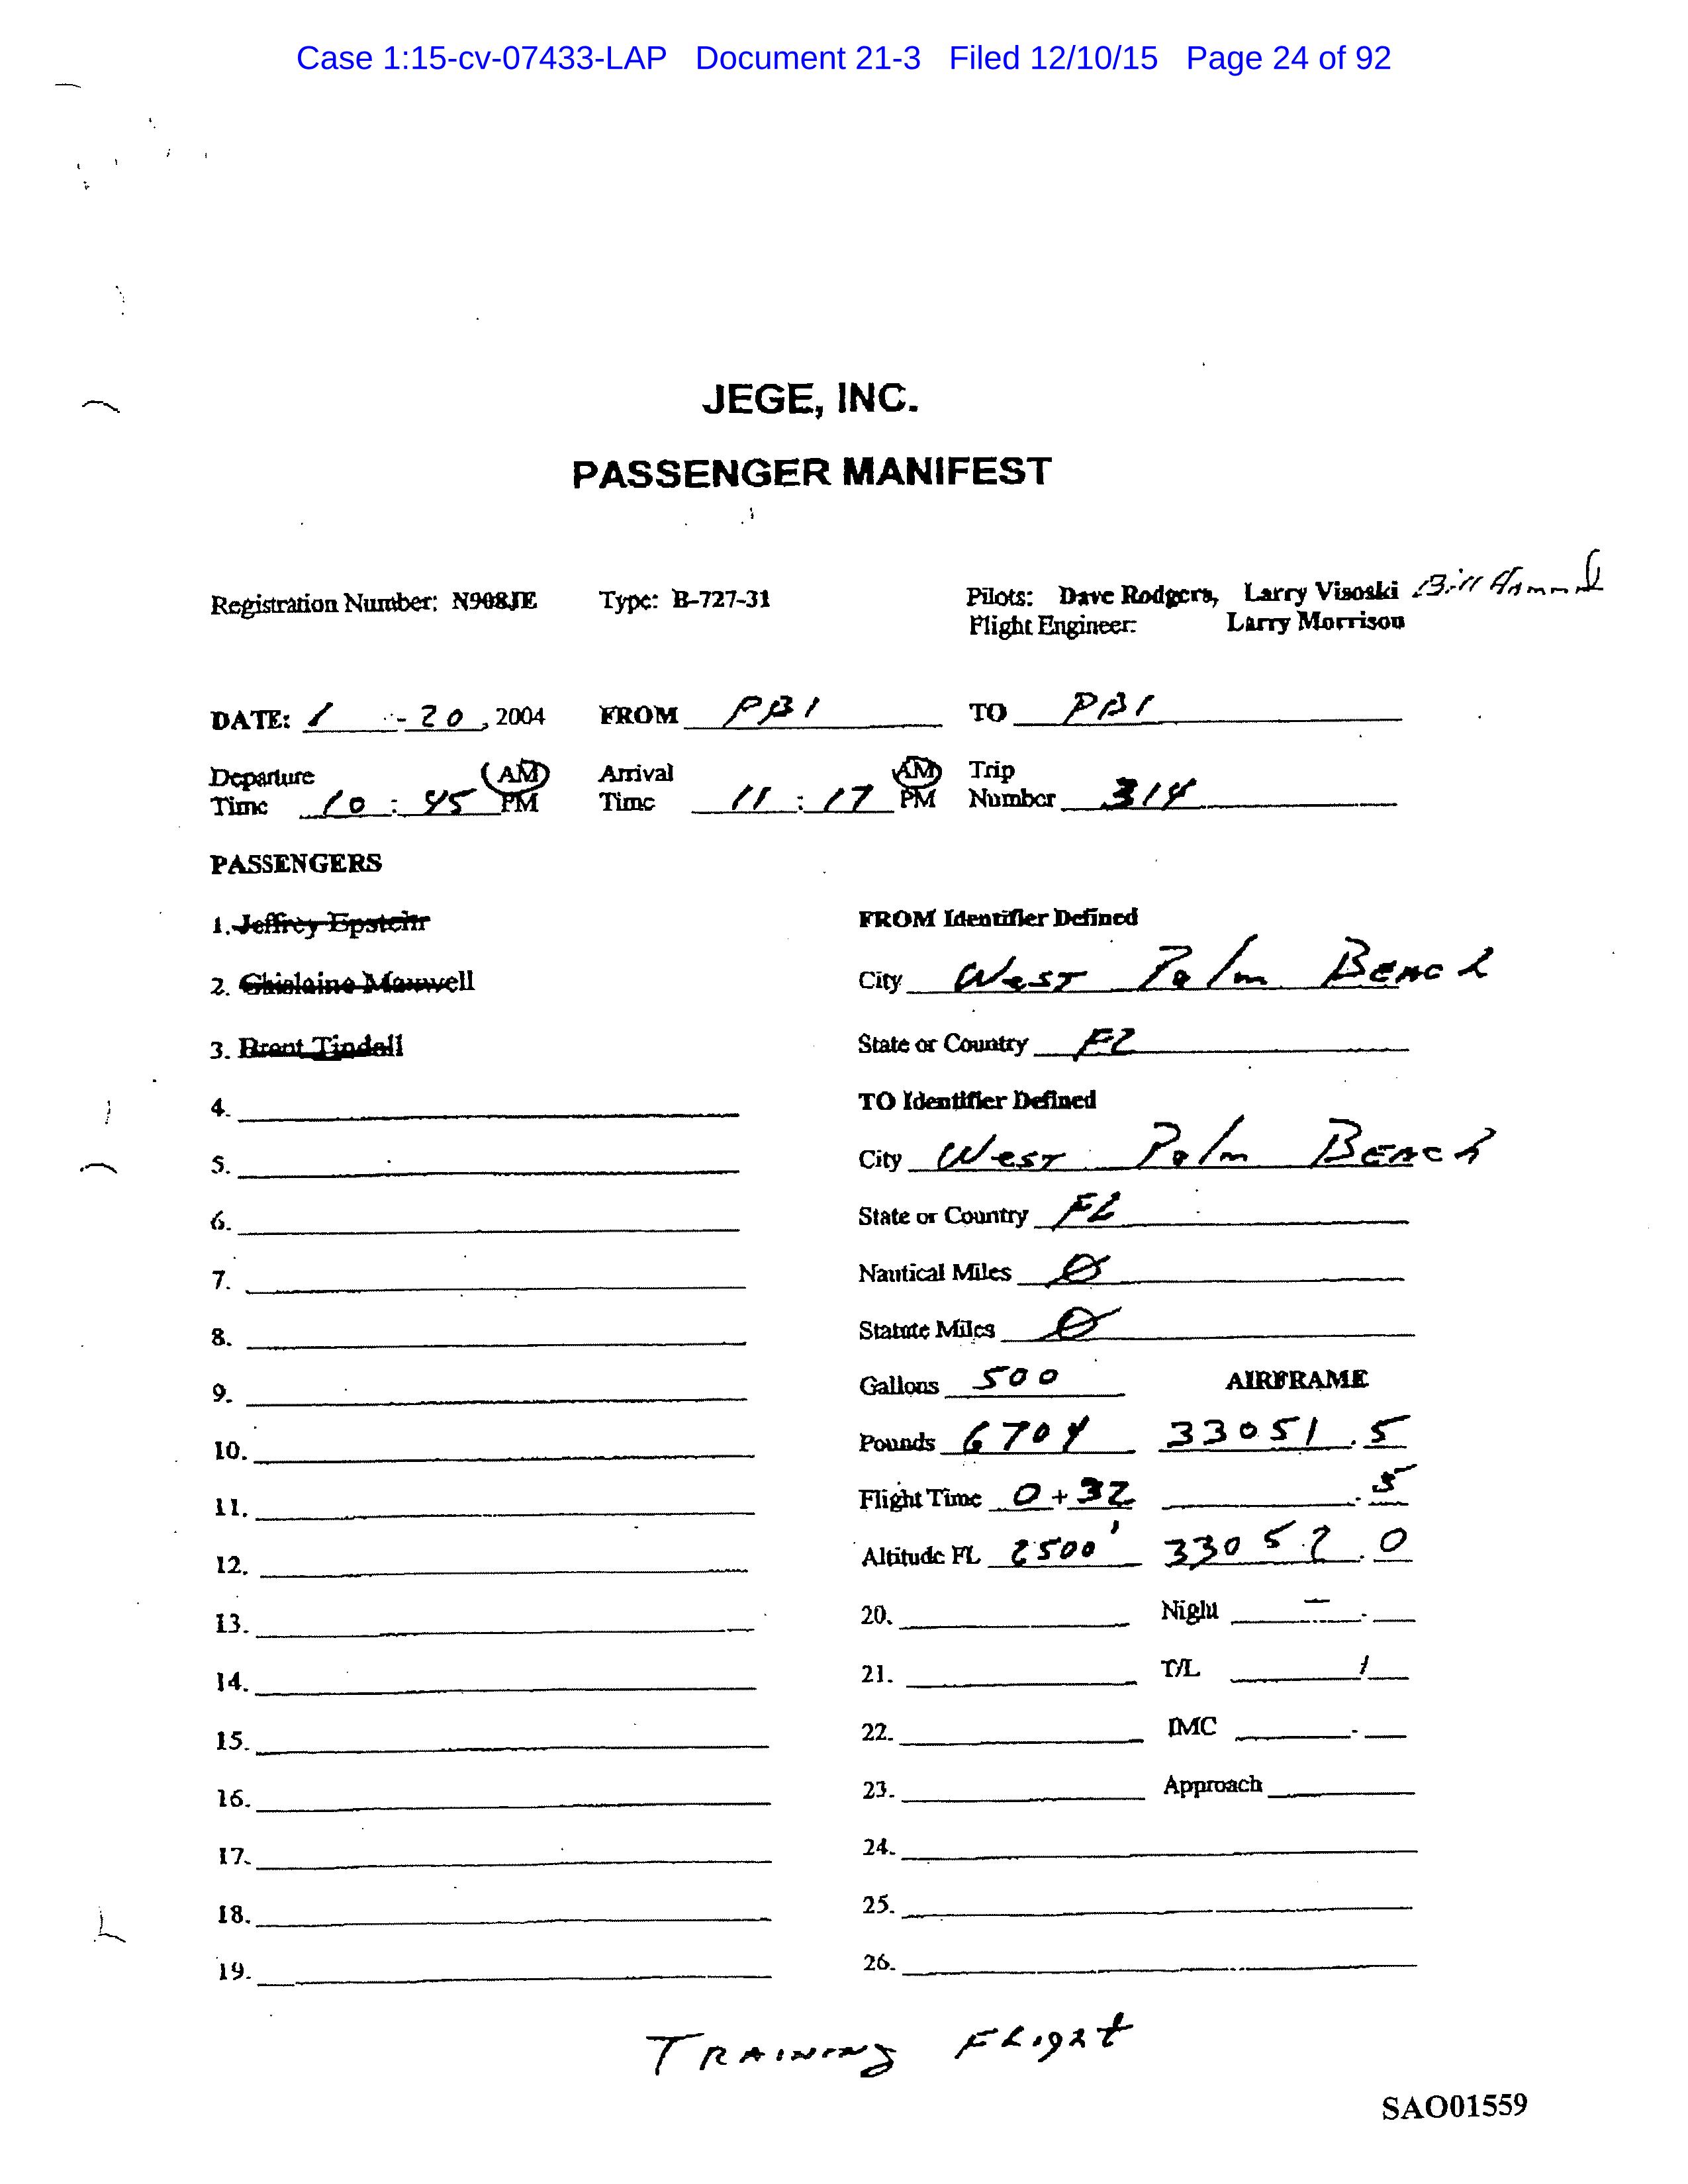 Case 1:15-cv-07433-LAP Document 21-3 Filed 12/10/15 Page 24 of 92
JEGE, INC.
PASSENGER MANIFEST
Registration Number: N908JE Type: B-727-31 Pilots: Dave Rodgers, Larry Visoski Bill Hammond
Flight Engineer: Larry Morrison
DATE: 1 - 20, 2004 FROM PBI TO PBI
Departure Time 10:45 AM PM Arrival Time 11:17 AM PM Trip Number 314
PASSENGERS
1. Jeffrey Epstein FROM Identifier Defined
2. Ghislaine Maxwell City West Palm Beach
3. Brent Tindall State or Country FL
4. TO Identifier Defined
5. City West Palm Beach
6. State or Country FL
7. Nautical Miles 0
8. Statute Miles 0
9. Gallons 500 AIRFRAME
10. Pounds 6704 33051.5
11. Flight Time 0+32 .5
12. Altitude FL 2500' 33052.0
13. 20. Night -
14. 21. T/L 1
15. 22. IMC .
16. 23. Approach
17. 24.
18. 25.
19. 26.
TRAINING FLIGHT
SAO01559